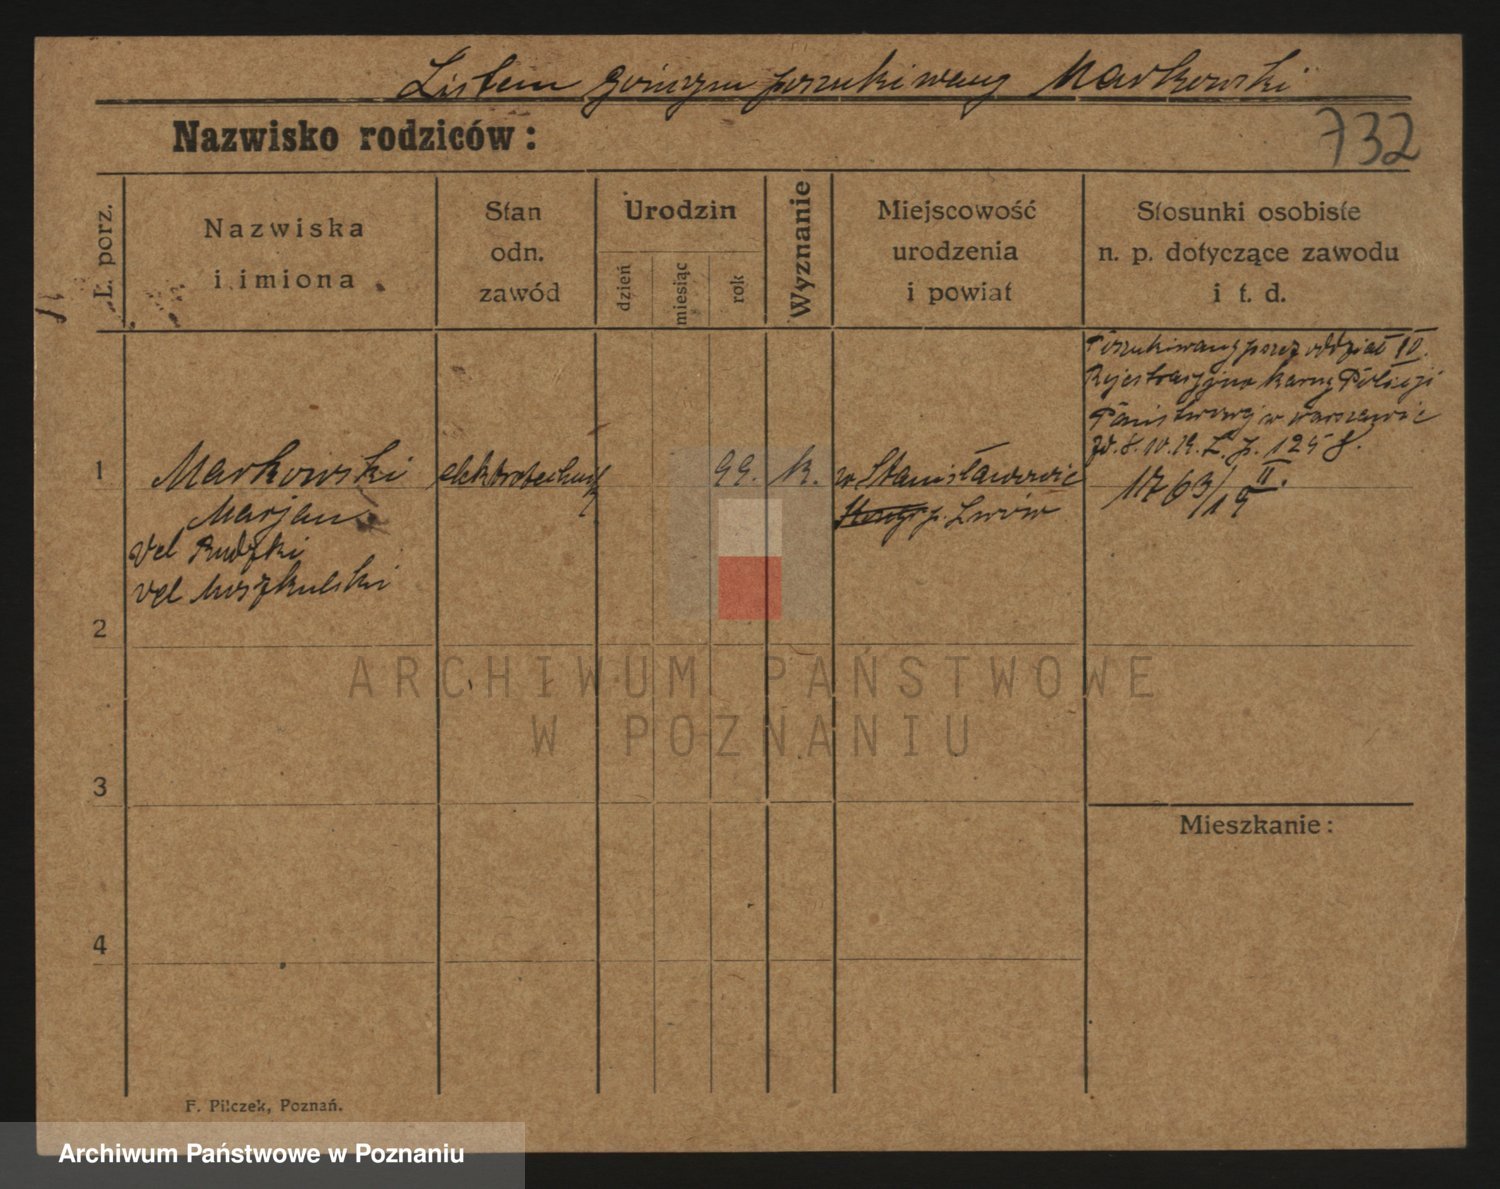 Listem gończym poszukiwany Markowski
Nazwisko rodziców:
732
Ł. porz.
Nazwiska
i imiona
Stan
odn.
zawód
Urodzin
dzień
miesiąc
rok
Wyznanie
Miejscowość
urodzenia
i powiat
Stosunki osobiste
n. p. dotyczące zawodu
i t. d.
Poszukiwany przez oddział IV.
Rejestracyjno karny Policji
Państwowej w Warszawie
L. p. 1258.
1763/19 II.
1
Markowski
Marjan
vel Rudzki
vel
elektrotechnik
99.
k.
w Stanisławowie
p. Lwów
2
3
4
Mieszkanie:
F. Pilczek, Poznań.
ARCHIWUM PAŃSTWOWE
W POZNANIU
Archiwum Państwowe w Poznaniu